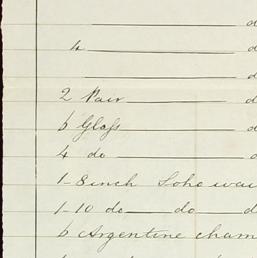 d
4 d
d
2 Pair d
6 Glass d
4 do d
1-8 inch Soho wai
1-10 do do d
6 Argentine cham